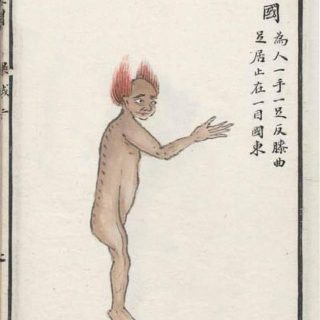 國
為人一手一足反膝曲
足居止在一目國東